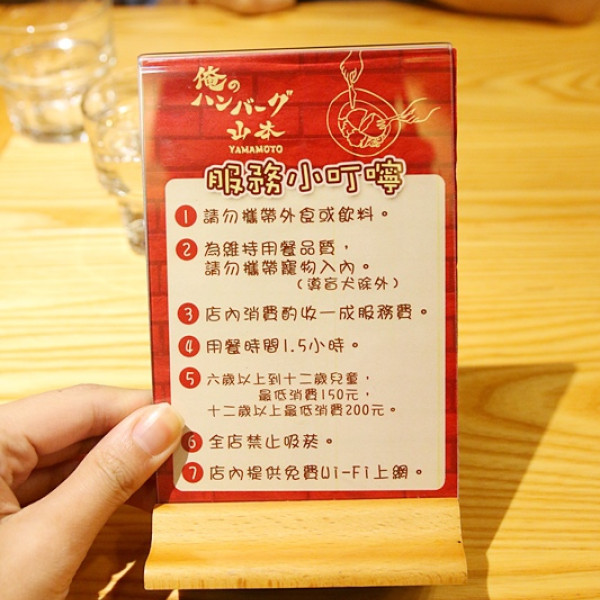 俺の
ハンバーグ
山本
YAMAMOTO
服務小叮嚀
1 請勿攜帶外食或飲料。
2 為維持用餐品質，
請勿攜帶寵物入內。
（導盲犬除外）
3 店內消費酌收一成服務費。
4 用餐時間1.5小時。
5 六歲以上到十二歲兒童，
最低消費150元，
十二歲以上最低消費200元。
6 全店禁止吸菸。
7 店內提供免費Wi-Fi上網。